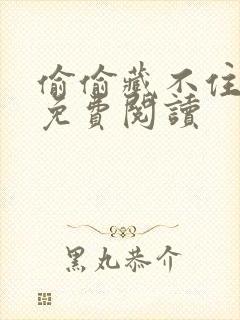 偷偷藏不住
免費閱讀
黑丸恭介